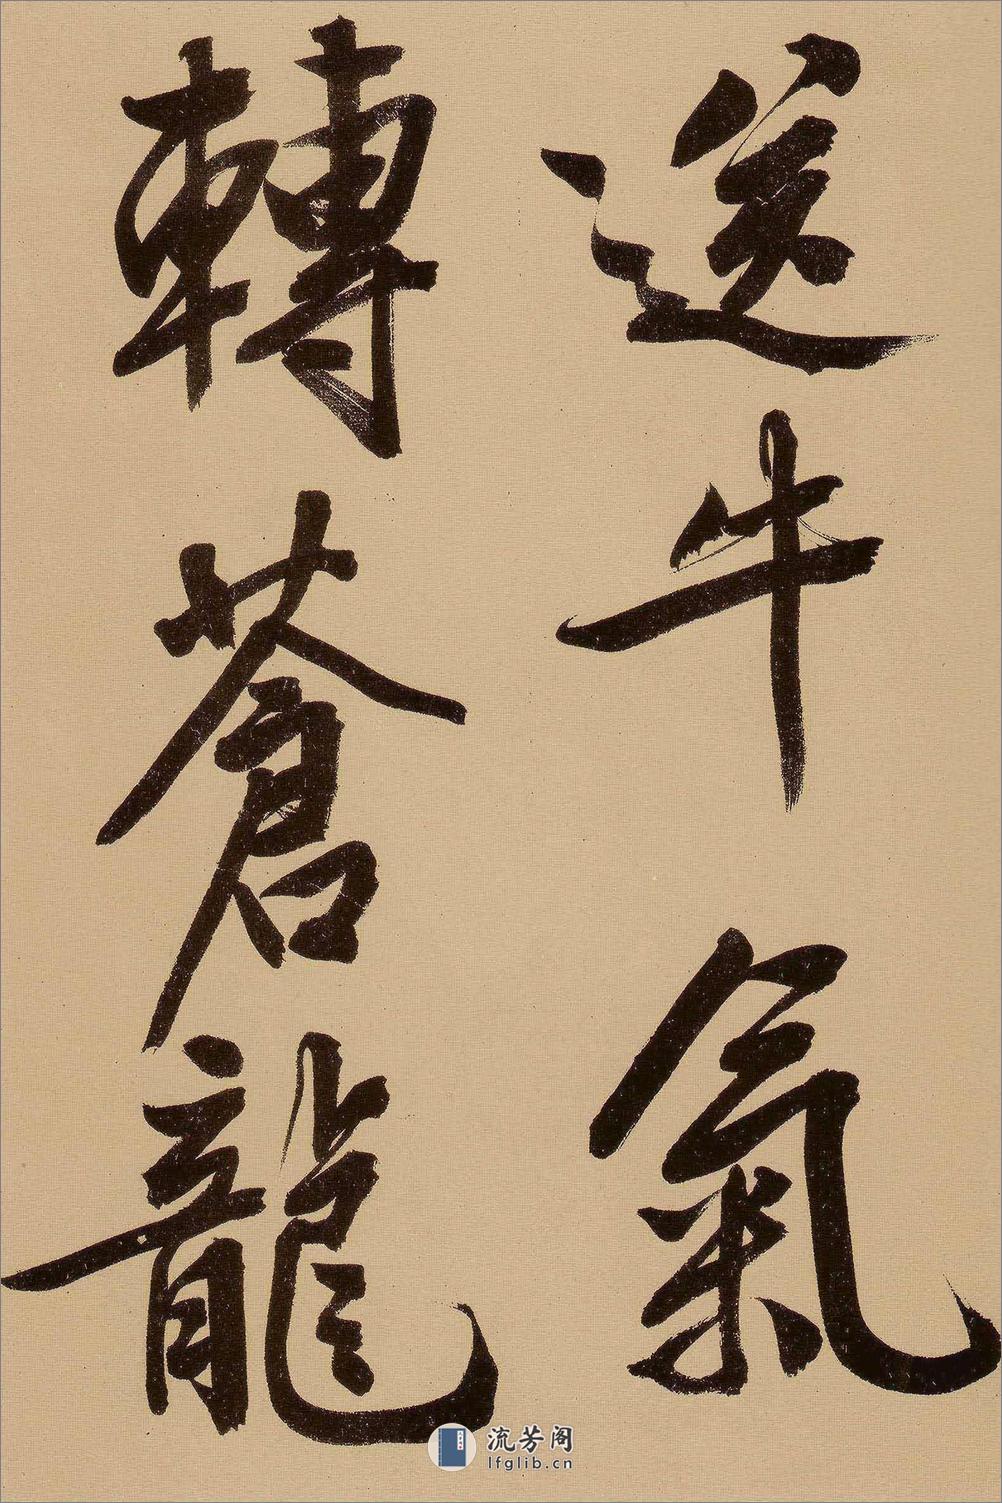 送牛氣
轉蒼龍
流芳阁
lfglib.cn